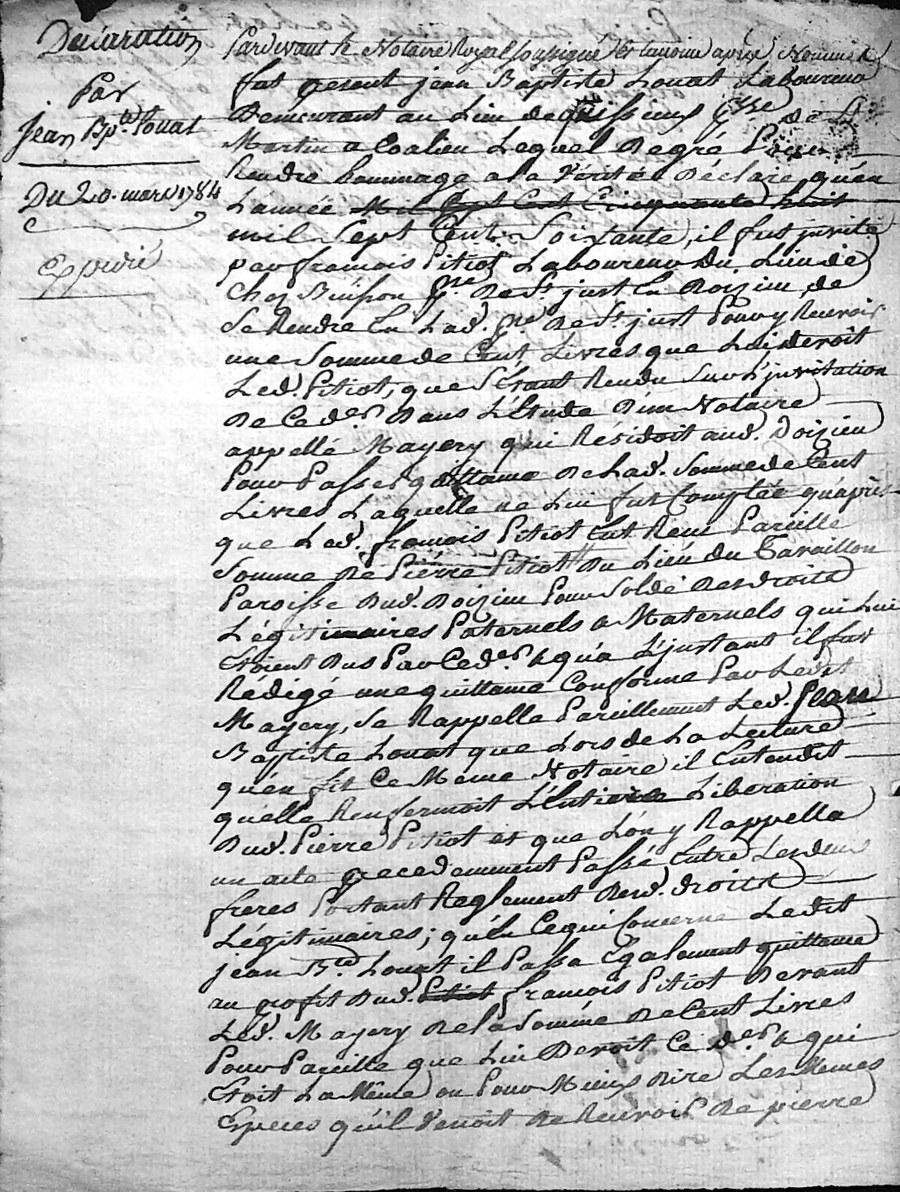 Declaration
Par
Jean Bpte. Louat
Du 20. mars 1784
Expedié
Pardevant le Notaire Royal soussigné et temoins après Nommés
fut present jean Baptiste Louat Laboureur
Demeurant au Lieu de psse de St.
Martin a Coalieu Lequel De gré Pour
Rendre hommage a la Vérité Déclare, qu'en
L'année Mil Sept Cent Cinquante huit
mil Sept Cent Soixante, il fut jnvité
par francois Pitiot Laboureur Du Lieu de
Chez psse. De St. just En Doizieu de
Se Rendre En Lad. psse De St. just Pour y Recevoir
une Somme de Cent Livres que Lui devoit
Led. Pitiot, que S'étant Rendu Sur L'jnvitation
De Ce der. Dans L'Etude D'un Notaire
appellé Mayery qui Résidoit aud. Doizieu
Pour Passer quittance De Lad. Somme de Cent
Livres Laquelle ne Lui fut Comptée qu'après
que Led. francois Pitiot Eut Reçu Pareille
Somme De Pierre Pitiot Du Lieu du Tavaillon
Paroisse Dud. Doizieu Pour Solde Des droits
Légitimaires Paternels & Maternels qui Lui
Etoient Dus Par Ce der. & qu'a L'jnstant il fut
Rédigé une quittance Conforme Par Ledit
Mayery, Se Rappelle Pareillement Led. Jean
Baptiste Louat que Lors de La Lecture
qu'en fit Ce Même Notaire il Entendit
qu'elle Renfermoit L'Entiere Liberation
Dud. Pierre Pitiot et que L'on y Rappella
un acte precedemment Passé Entre Les deux
freres Portant Reglement Desd. droits
Légitimaires; qu'En Ce qui Concerne Ledit
jean Bte. Louat il Passa Également quittance
au profit Dud. Pitiot francois Pitiot Devant
Led. Mayery De la Somme De Cent Livres
Pour Pareille que Lui Devoit Ce der. & qui
Etoit La Même ou Pour Mieux Dire Les Mêmes
Especes qu'il Venoit De Recevoir De pierre